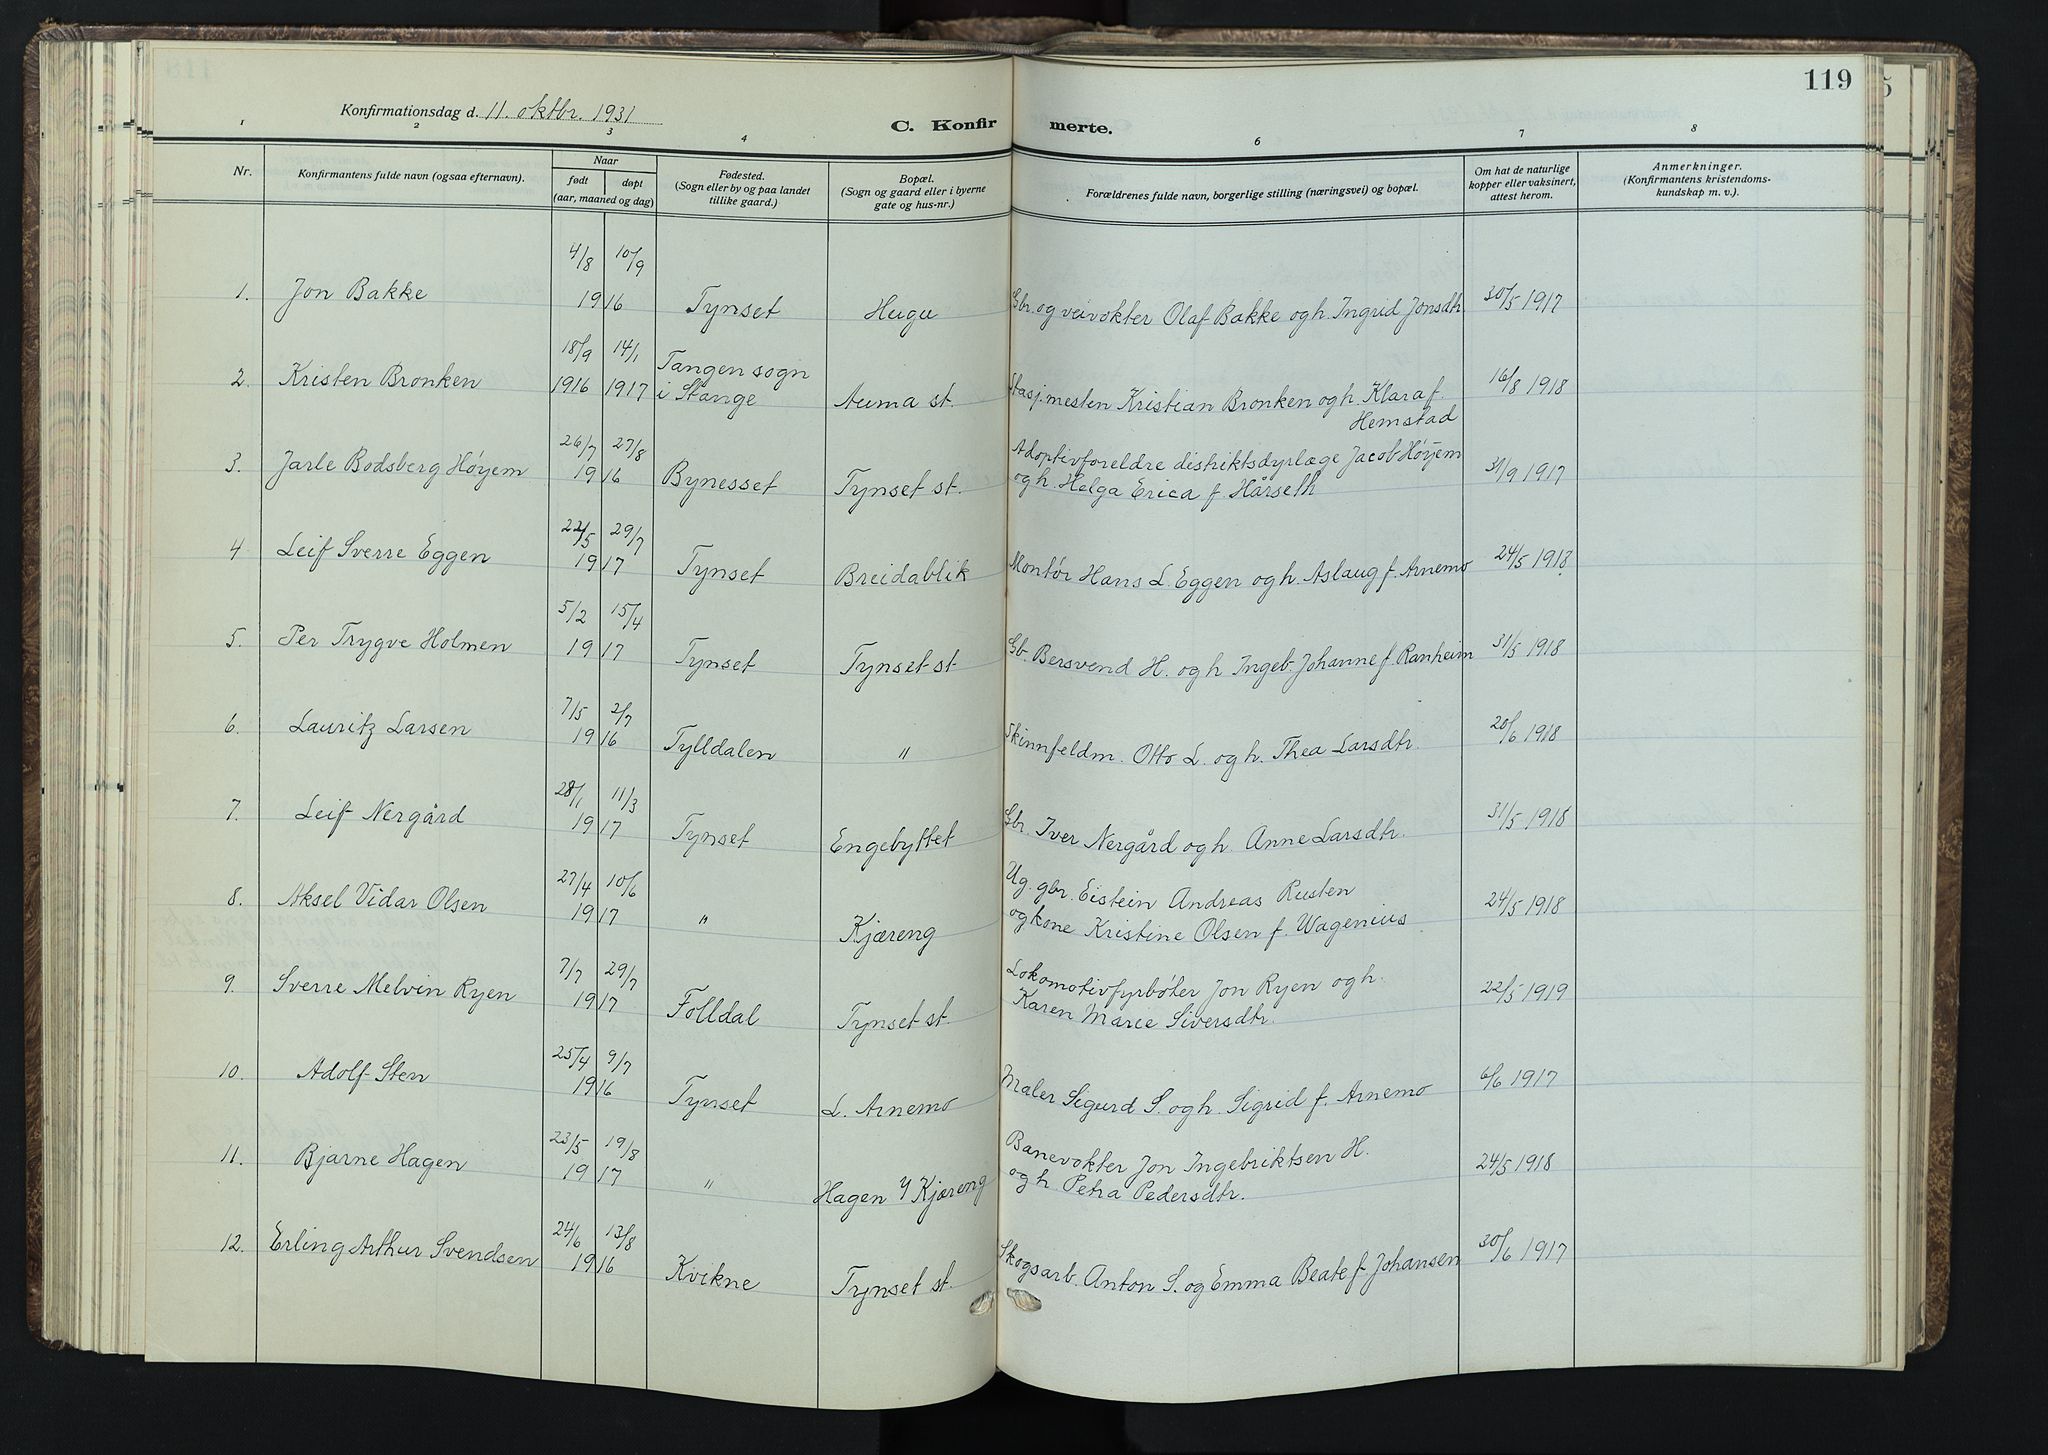 119
Konfirmationsdag d. 11. oktbr. 1931
C. Konfir merte.
1 2 3 4 6 7 8
Nr.
Konfirmantens fulde navn (ogsaa efternavn).
Naar
født døpt
(aar, maaned og dag)
Fødested.
(Sogn eller by og paa landet
tillike gaard.)
Bopæl.
(Sogn og gaard eller i byerne
gate og hus-nr.)
Forældrenes fulde navn, borgerlige stilling (næringsvei) og bopæl.
Om hat de naturlige
kopper eller vaksinert,
attest herom.
Anmerkninger.
(Konfirmantens kristendoms-
kundskap m. v.).
4/8 10/9
1. Jon Bakke 1916 Tynset Hugu Gbr. og veivokter Olaf Bakke og h. Ingrid Jonsdtr 30/5 1917
18/9 14/1 Tangen sogn
2. Kristen Bronken 1916 1917 i Stange Auma st. Stasj.mesten Kristian Bronken og h. Klara f. 16/8 1918
Hemstad
26/7 27/8 Adoptivforeldre distriktsdyrlæge Jacob Høyem
3. Jarle Bodsberg Høyem 1916 Bynesset Tynset st. og h. Helga Erica f. Hårseth 31/9 1917
22/5 29/7
4 Leif Sverre Eggen 1917 Tynset Breidablik Montør Hans L. Eggen og h. Aslaug f. Arnemo 24/5 1918
5/2 15/4
5. Per Trygve Holmen 1917 Tynset Tynset st Gb. Bersvend H. og h Ingeb. Johanne f. Ranheim 31/5 1918
7/5 2/7
6. Lauritz Larsen 1916 Tylldalen " Skinnfeldm. Otto L. og h. Thea Larsdtr. 20/6 1918
28/1 11/3
7. Leif Nergård 1917 Tynset Engebyttet Gbr. Iver Nergård og h. Anne Larsdtr. 31/5 1918
27/4 10/6 Ug. gbr. Eistein Andreas Rusten
8. Aksel Vidar Olsen 1917 " Kjæreng og kone Kristine Olsen f. Wagenius 24/5 1918
7/7 29/7 Lokomotivfyrbøter Jon Ryen og h.
9. Sverre Melvin Ryen 1917 Folldal Tynset st. Karen Marie Siversdtr. 22/5 1919
25/4 9/7
10. Adolf Sten 1916 Tynset L. Arnemo Maler Sigurd S. og h. Sigrid f. Arnemo 6/6 1917
23/5 19/8 Banevokter Jon Ingebriktsen H.
11. Bjarne Hagen 1917 " Hagen y Kjæreng og h Petra Pedersdtr. 24/5 1918
24/6 13/8
12. Erling Arthur Svendsen 1916 Kvikne Tynset st. Skogsarb. Anton S. og Emma Beate f. Johansen 30/6 1917